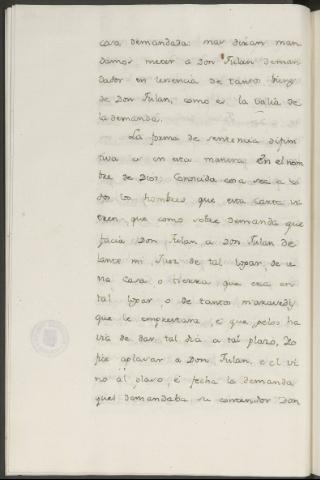 cosa demandada: mas dixam man
damos meter a Don Fulan deman
dador en tenencia de tantos bienes
de Don Fulan, como es la valia de
la demanda.
La forma de sentencia difini
tiva es en esta manera. En el nom
bre de Dios: Conoscida cosa sea a to
dos los hombres que esta carta vi
eren que como sobre demanda que
facia Don Fulan a Don Fulan de
lante mi Juez de tal logar, de u
na casa o tierra que era en
tal logar, o de tantos maravedis
que le emprestara, e que gelos ha
via de dar tal dia a tal plazo, Yo
fiz aplazar a Don Fulan, e el vi
no al plazo, é fecha la demanda
quel demandaba su contendor Don